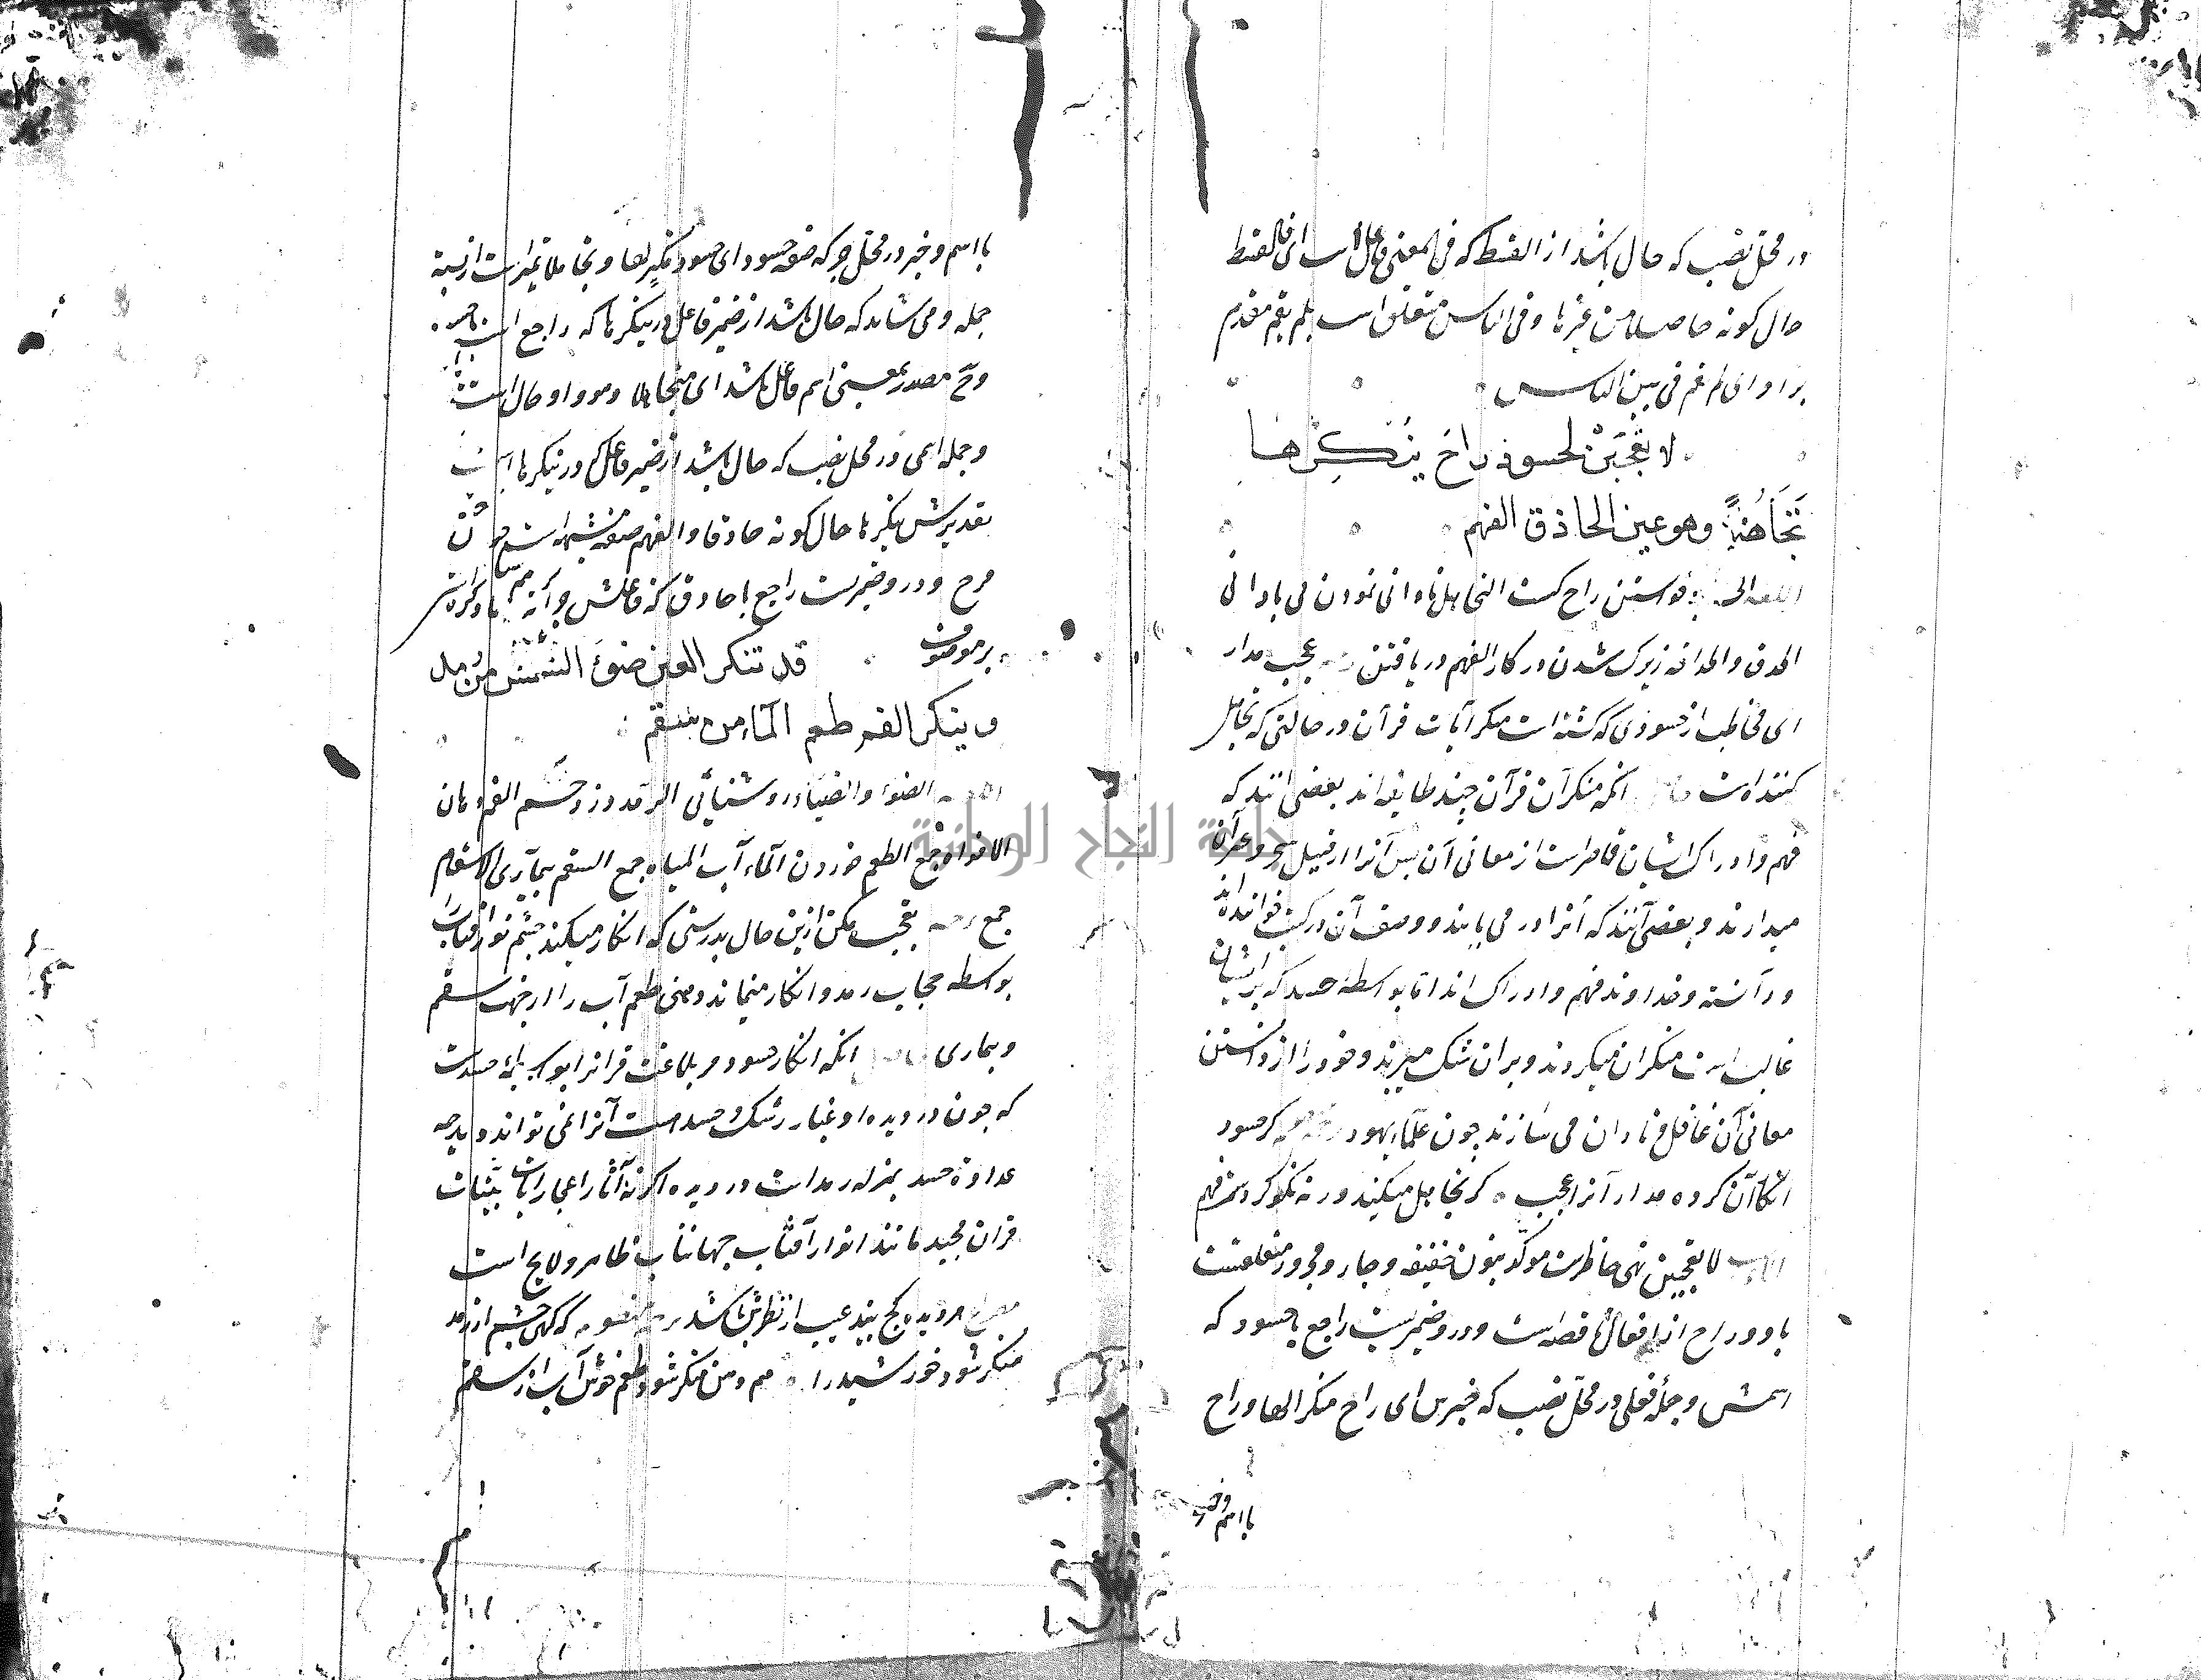 در محل نصب که حال باشد از القسط که فی المعنی فاعل است ای فالقسط
حال کونه حاصلا من غیرها و فی الناس متعلق است بلم یقم مقدم
برو ای لم یقم فی بین الناس
لا تعجبن لحسود راح ینکرها
تجاهلا وهو عین الحاذق الفهم
راح کشت التجاهل نادانی نمودن می با دانی
الحذق والحذاقه زیرک شدن در کار الفهم دریافتن عجب مدار
ای مخاطب از حسودی که کشته است منکر آیات قرآن در حالتی که تجاهل
کننده است انکه منکرآن قرآن چند طایفه اند بعضی انند که
فهم و ادراک ایشان قاصر است از معانی آن پس آنرا از قبیل سحر و
میدارند و بعضی آنند که آنرا در می یابند و وصف آن در کتب خوانده اند
و دانسته و خداوند فهم و ادراک اند اما بواسطه حسد که بر ایشان
غالب است منکر آن میکردند و بر آن شک میبرند و خود را از دانستن
معانی آن غافل و نادان می سازند چون علماء یهود کر حسود
انکار آن کرده مدار آنرا عجب کر تجاهل میکند ورنه نکو کردست فهم
لا تعجبن نهی حاضرست موکد بنون خفیفه و جار و مجرور متعلقست
باو و راح از افعال ناقصه است و در و ضمیریست راجع بحسود که
اسمش و جمله فعلی در محل نصب که خبرش ای راح منکرا لها و راح
با اسم و خبر
با اسم و خبر در محل جر که صفه حسود ای حسود منکر لها و تجاهلا تمیز است از نسبة
جمله و می شاید که حال باشد از ضمیر فاعل در ینکرها که راجع است
وح مصدر بمعنی اسم فاعل باشد ای متجاهلا و هو واو حال است
و جمله اسمی در محل نصب که حال باشد از ضمیر فاعل که در ینکرها است
تقدیرش ینکرها حال کونه حاذقا و الفهم صفه مشبهه است چون
فرح و در و ضمیریست راجع با حاذق که فاعلش
بر موصوف
قد تنکر العین ضوء الشمس من رمد
و ینکر الفم طعم الماء من سقم
الضوء والضیاء روشنایی الرمد درد چشم الفم دهان
الافواه جمع الطعم خوردن الماء آب المیاه جمع السقم بیماری الاسقام
جمع تعجب مکن ازین حال بدرستی که انکار میکند چشم نور آفتاب را
بواسطه حجاب رمد و انکار مینماید دهن طعم آب را از جهت سقم
و بیماری انکه انکار حسود مر بلاغت قرانرا بواسطه حسدست
که چون در دیده او غبار رشک و حسد هست آنرا نمی تواند دید چه
عداوة حسد بمنزله رمد است در دیده اکرنه آثار اعجاز آیات بینات
قران مجید مانند انوار آفتاب جهانتاب ظاهر و لایح است
دیده کج بیند عیب از نظرش باشد که کهی چشم از رمد
منکر شود خورشید را هم دهن منکر شود طعم خوش آب از سقم
جامعة النجاح الوطنية